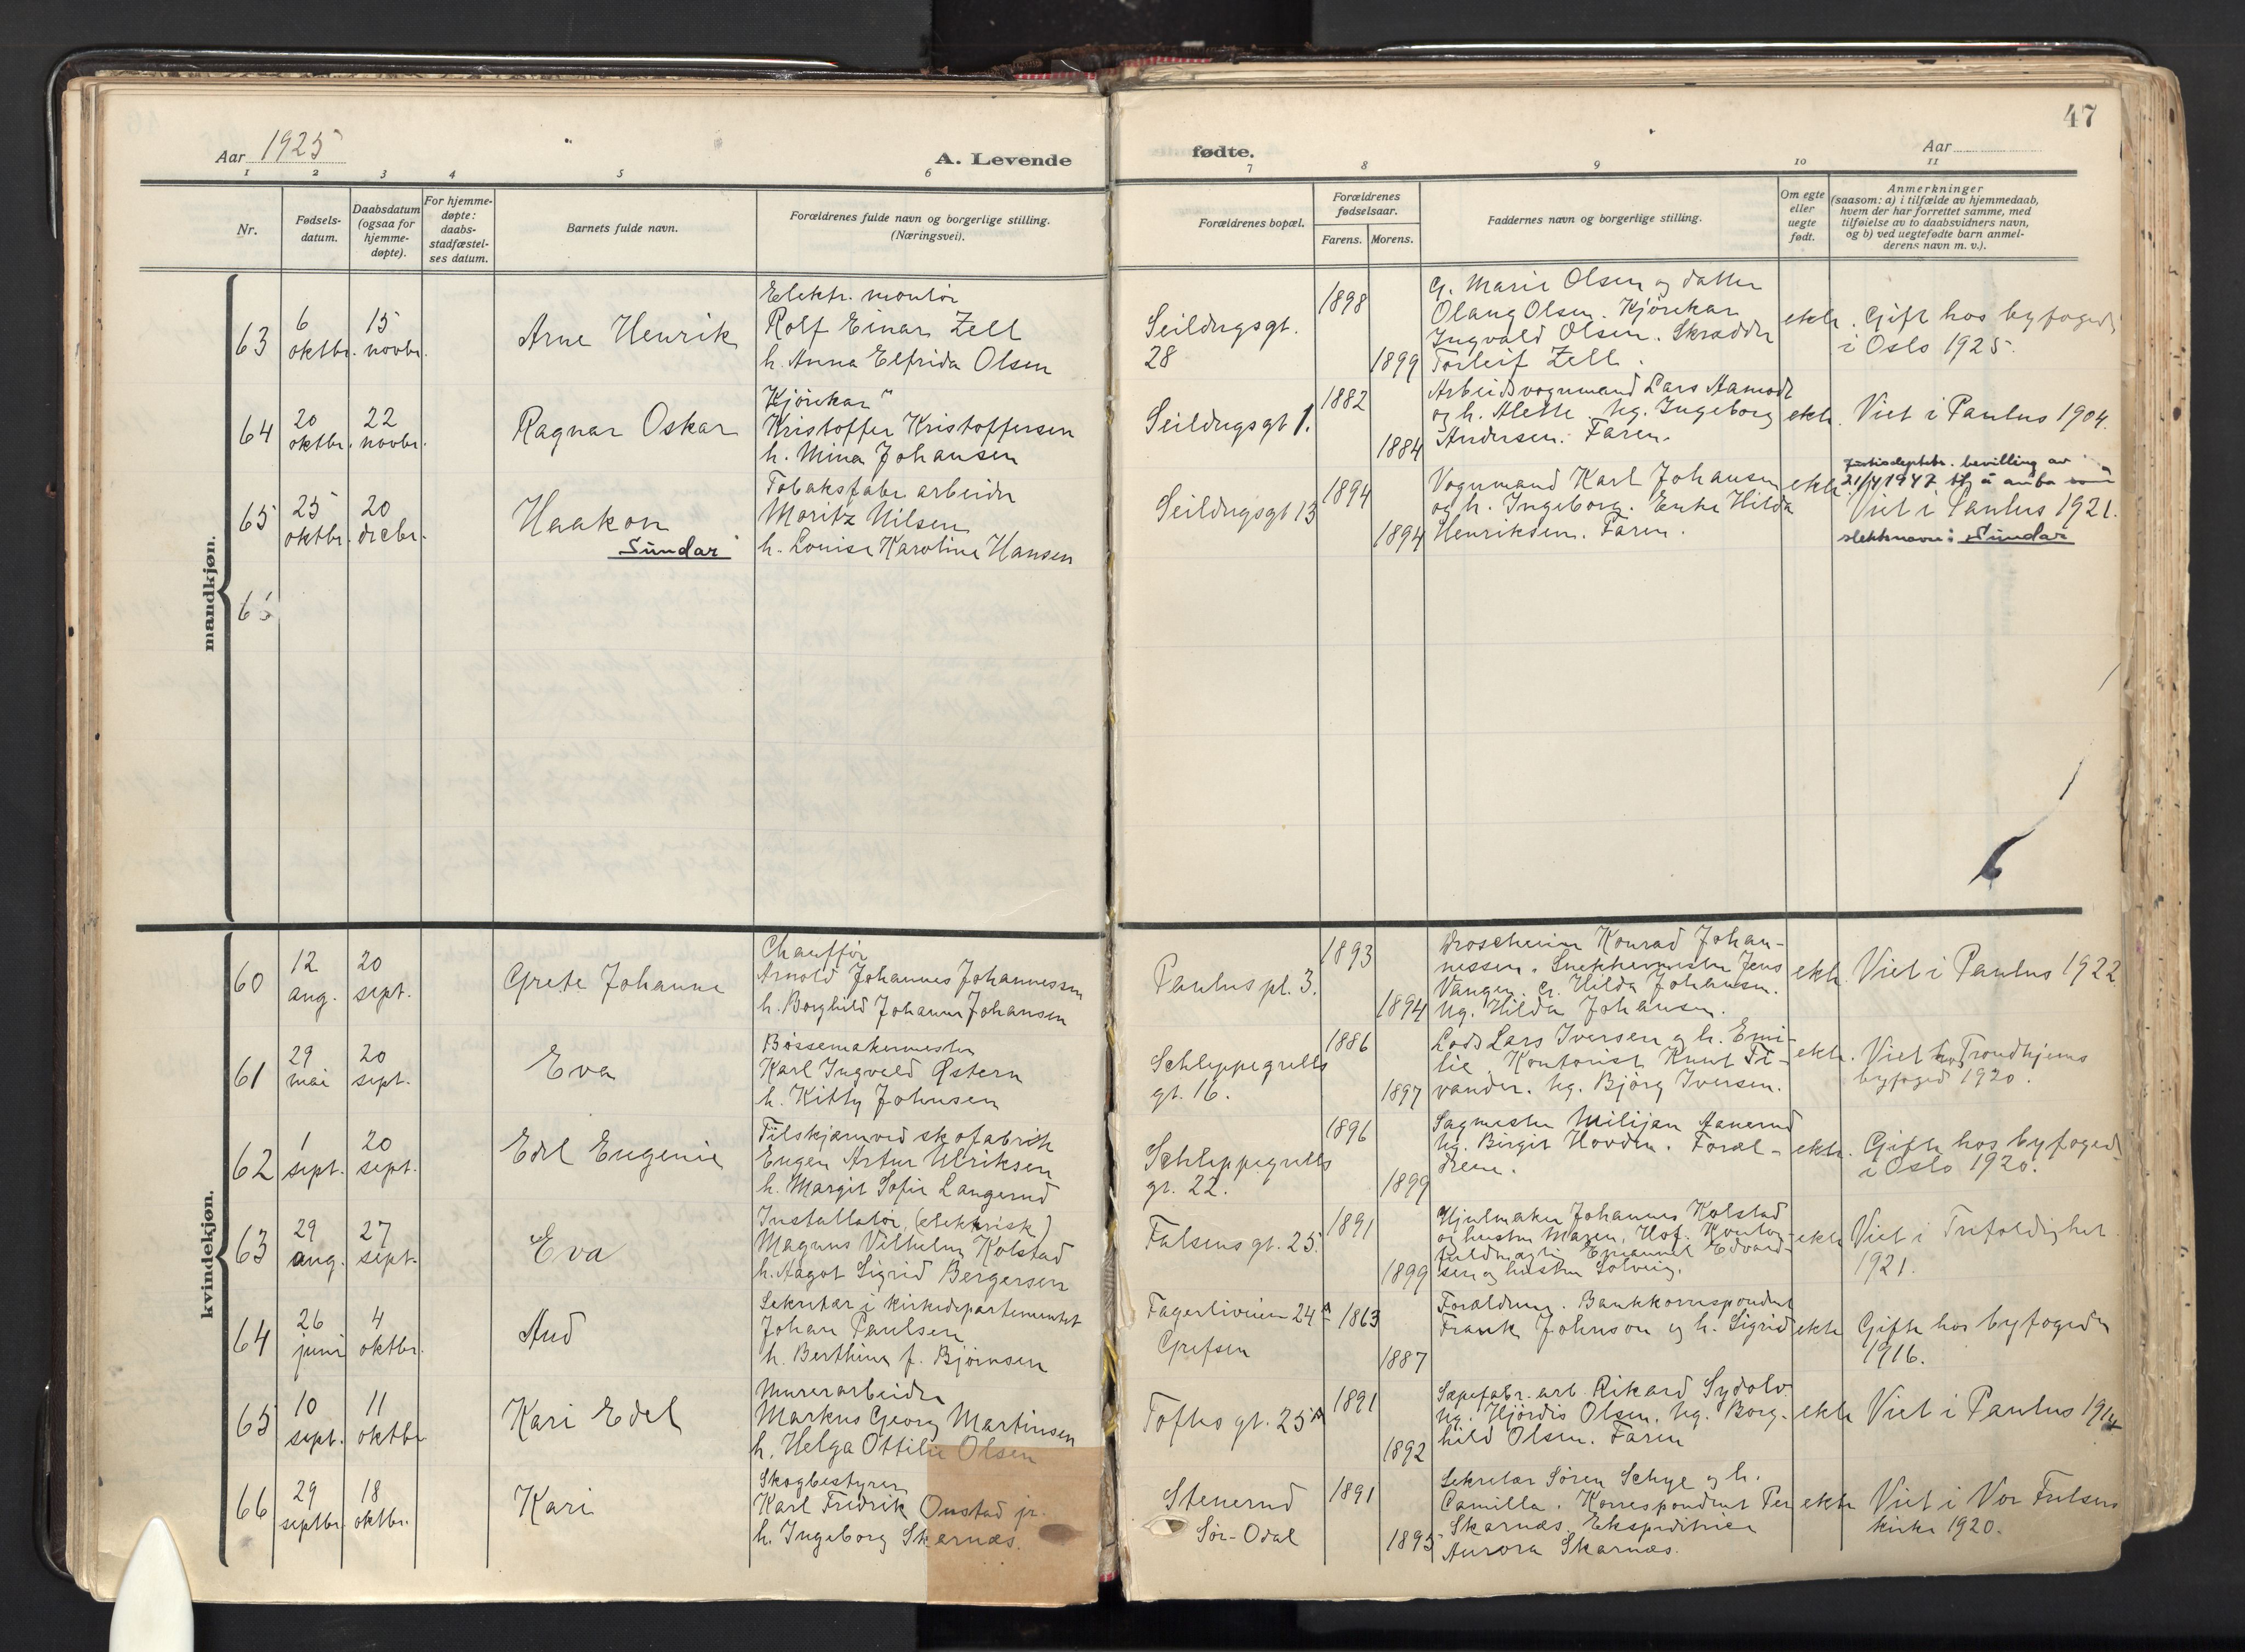 47
Aar 1925
A. Levende
fødte.
Aar
1 2 3 4 5 6 7 8 9 10 11
Nr.
Fødsels-
datum.
Daabsdatum
(ogsaa for
hjemme-
døpte).
For hjemme-
døpte:
daabs-
stadfæstel-
ses datum.
Barnets fulde navn.
Forældrenes fulde navn og borgerlige stilling.
(Næringsvei).
Forældrenes bopæl.
Forældrenes
fødselsaar.
Farens. Morens.
Faddernes navn og borgerlige stilling.
Om egte
eller
uegte
født.
Anmerkninger
(saasom: a) i tilfælde av hjemmedaab,
hvem der har forrettet samme, med
tilføielse av to daabsvidners navn,
og b) ved uegtefødte barn anmel-
derens navn m. v.).
mandkjøn.
63
6
oktbr.
15
novbr.
Arne Henrik
Elektr. montör
Rolf Einar Zell
h. Anna Elfrida Olsen
Seildugsgt.
28
1898
1899
G. Marie Olsen og datter
Olaug Olsen. Kjörekar
Ingvald Olsen. Skrædder
Torleif Zell.
ekte.
Gift hos byfoged
i Oslo 1925.
64
20
oktbr.
22
novbr.
Ragnar Oskar
Kjörekar
Kristoffer Kristoffersen
h. Mina Johansen
Seildugsgt 1.
1882
1884
Arbeidsvognmand Lars Aamodt
og h. Alette. Ug. Ingeborg
Andersen. Faren.
ekte.
Viet i Paulus 1904.
65
25
oktbr.
20
decbr.
Haakon
Sundar
Tobaksfabr. arbeider
Moritz Nilsen
h. Louise Karoline Hansen
Seildugsgt 13
1894
1894
Vognmand Karl Johansen
og h. Ingeborg. Enke Hilda
Henriksen. Faren.
ekte.
Justisdeptets. bevilling av
21/4 1947 til å anta som
Viet i Paulus 1921.
slektsnavn: Sundar
66
6
kvindekjøn.
60
12
aug.
20
sept.
Grete Johanne
Chaufför
Arnold Johannes Johannessen
h. Borghild Johanne Johansen
Paulus pl. 3.
1893
1894
Droscheeier Konrad Johan-
nessen. Snekkermester Jens
Vangen. G. Hilda Johansen.
Ug. Hilda Johansen.
ekte.
Viet i Paulus 1922
61
29
mai
20
sept.
Eva
Bössemakermester
Karl Ingvald Østern
h. Kitty Johnsen
Schleppegrells
gt. 16.
1886
1897
Lods Lars Iversen og h. Emi-
lie. Kontorist Knut Ti-
vander. Ug. Björg Iversen.
ekte.
Viet hos Trondhjems
byfoged 1920.
62
1
sept.
20
sept.
Edel Eugenie
Tilskjærer ved skofabrik
Eugen Artur Ulriksen
h. Margit Sofie Langerud
Schleppegrells
gt. 22.
1896
1899
Sagmester Milijan Aanerud
Ug. Birgit Hovden. Foræl-
drene.
ekte.
Gifte hos byfoged
i Oslo 1920.
63
29
aug.
27
sept.
Eva
Installatör (elektrisk)
Magnus Vilhelm Kolstad
h. Aagot Sigrid Bergersen
Falsens gt. 25.
1891
1899
Hjulmaker Johannes Kolstad
og hustru Maren, Hof. Kontor-
fuldmægtig Emanuel Edvard-
sen og hustru Solveig.
ekte
Viet i Trefoldighet
1921.
64
26
juni
4
oktbr.
Aud
Sekretær i kirkedepartementet
Johan Paulsen
h. Berthine f. Björnsen
Fagerliveien 24 A
Grefsen
1863
1887
Forældrene. Bankkorrespondent
Frank Johnson og h. Sigrid
ekte
Gifte hos byfogden
1916.
65
10
sept.
11
oktbr
Kari Edel
Murerarbeider
Markus Georg Martinsen
h. Helga Ottilie Olsen
Toftes gt. 25 A
1891
1892
Sæpefabr. arb. Rikard Sydolv.
Ug. Hjördis Olsen. Ug. Borg-
hild Olsen. Faren
ekte
Viet i Paulus 1914
66
29
septbr.
18
oktbr.
Kari
Skogbestyrer
Karl Fredrik Onstad jr.
h. Ingeborg Skarnæs.
Stenerud
Sör-Odal
1891
1895
Sekretær Sören Schye og h.
Camilla. Korrespondent Per
Skarnæs. Ekspeditrice
Aurora Skarnæs.
ekte
Viet i Vor Frelsers
kirke 1920.